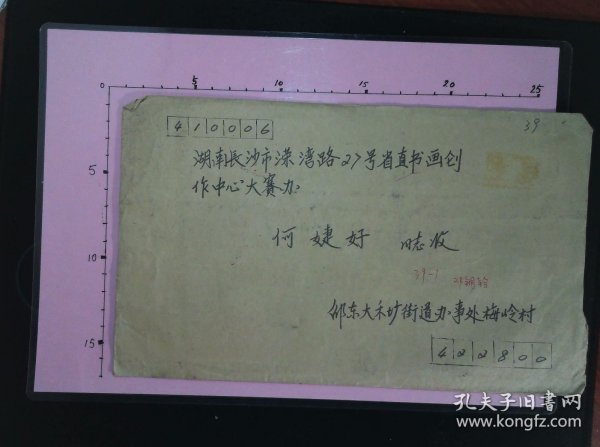 5
10
15
20
25
0
5
10
15
39
410006
湖南長沙市溁湾路27号省直书画创
作中心大赛办
何婕好 同志收
39-1
邵东大禾圹街道办事处梅岭村
422800
孔夫子旧书网
www.kongfz.com